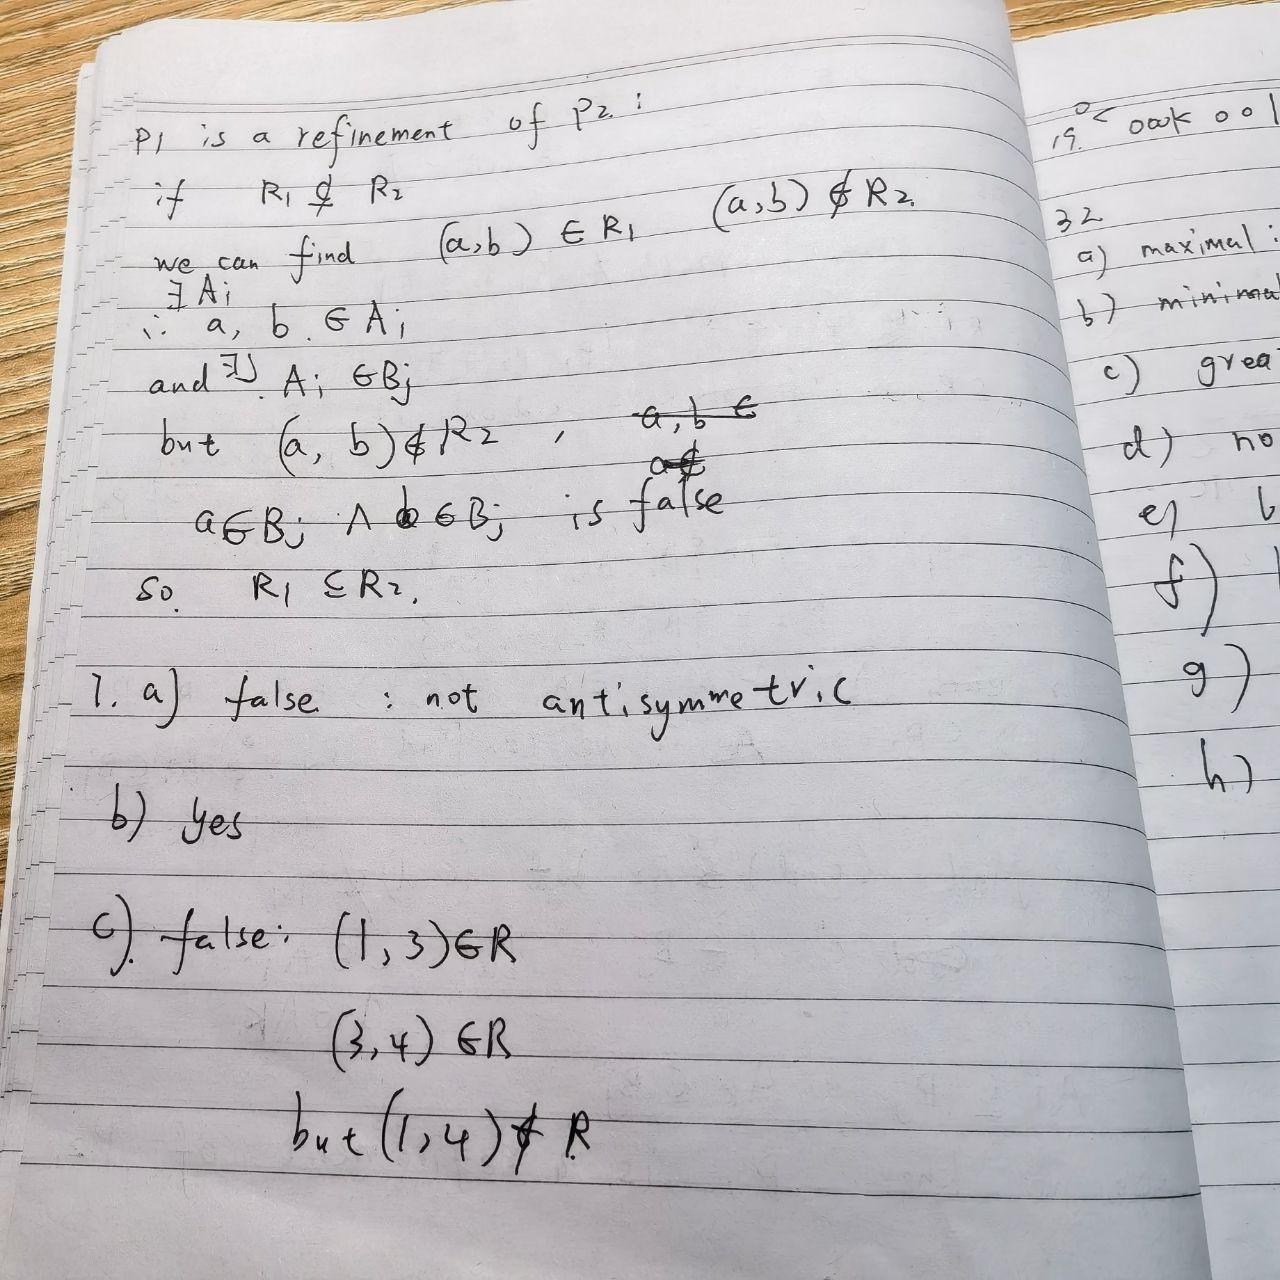 P1 is a refinement of P2 :
if R1 ⊄ R2
we can find (a,b) ∈ R1 (a,b) ∉ R2
∃ Ai
∴ a, b ∈ Ai
and ∃j Ai ∈ Bj
but (a, b) ∉ R2 , a, b ∈
a∉
a∈Bj ∧ b∈Bj is false
so. R1 ⊆ R2.
1. a) false : not antisymmetric
b) yes
c). false: (1,3)∈R
(3,4) ∈R
but (1,4) ∉ R
19.
32
a) maximal :
b) minimal
c) grea
d) no
e)
f)
g)
h)